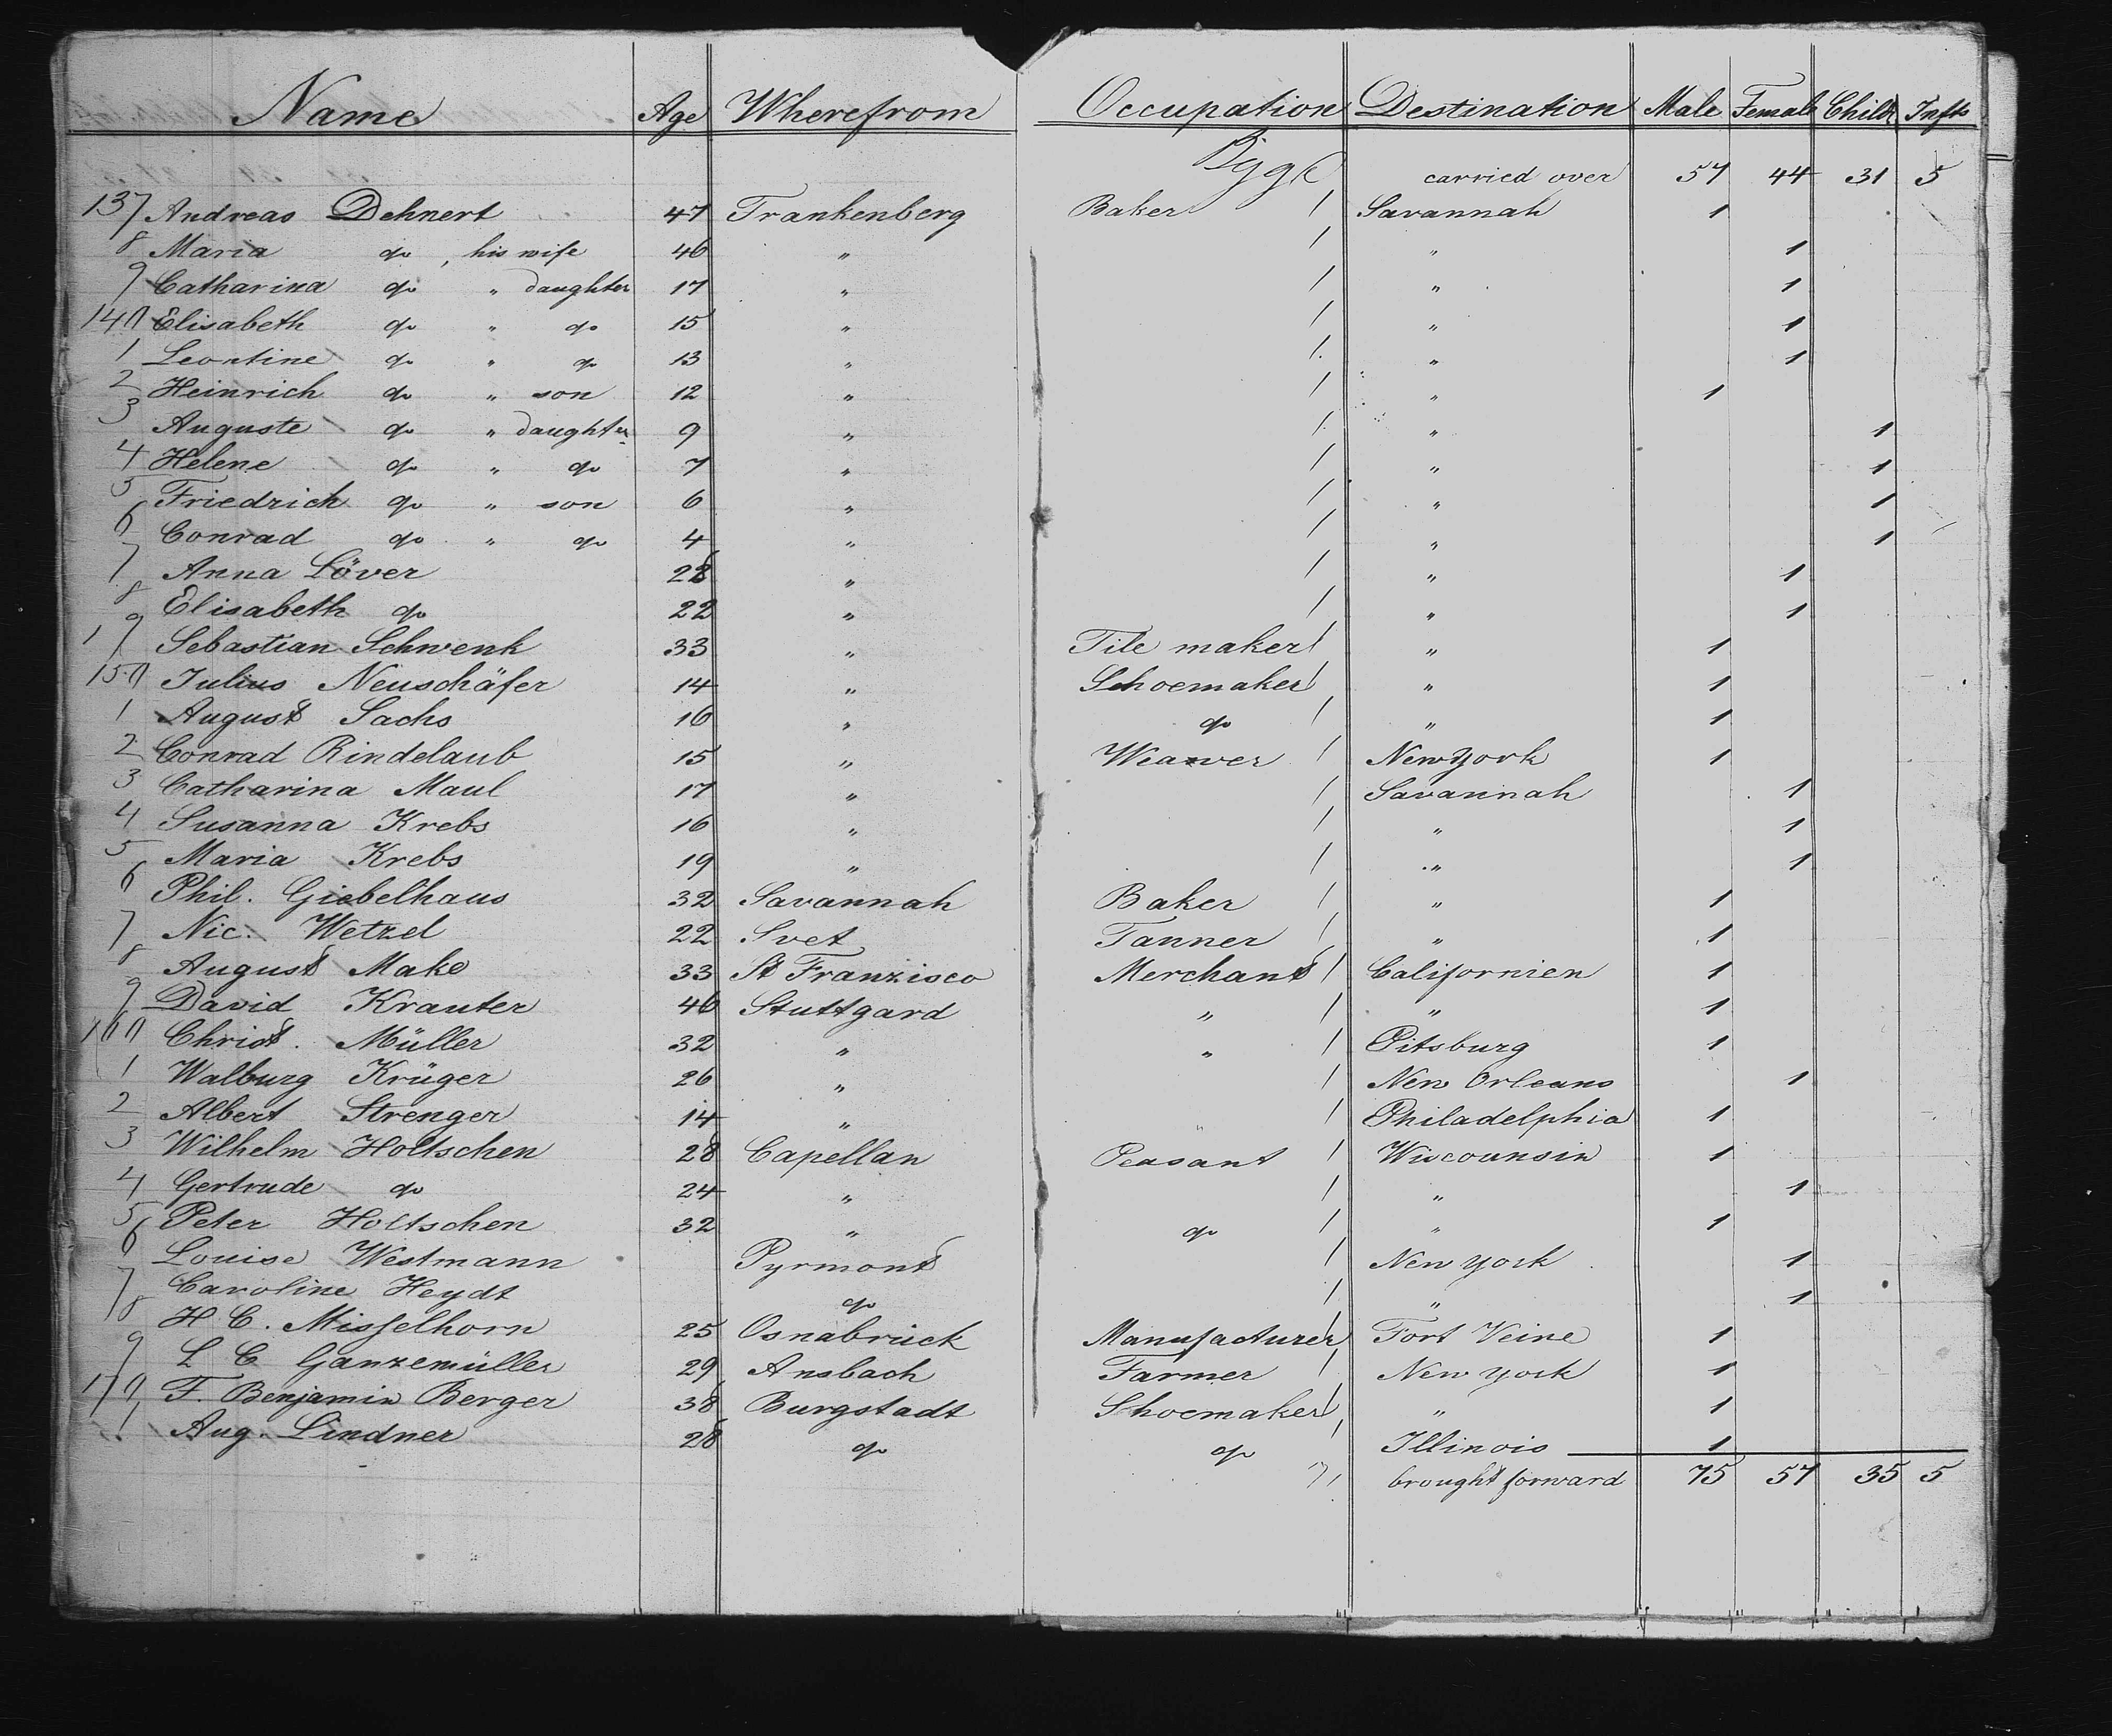 Name Age Wherefrom Occupation Destination Male Female Childr Infts
carried over 57 44 31 5
137 Andreas Dehnert 47 Frankenberg Baker / Savannah 1
8 Maria do, his wife 46 " / " 1
9 Catharina do " daughter 17 " / " 1
140 Elisabeth do " do 15 " / " 1
1 Leontine do " do 13 " / " 1
2 Heinrich do " son 12 " / " 1
3 Auguste do " daughter 9 " / " 1
4 Helene do " do 7 " / " 1
5 Friedrich do " son 6 " / " 1
6 Conrad do " do 4 " / " 1
7 Anna Löver 28 " / " 1
8 Elisabeth do 22 " / " 1
9 Sebastian Schwenk 33 " Tile maker / " 1
150 Julius Neuschäfer 14 " Schoemaker / " 1
1 August Sachs 16 " do / " 1
2 Conrad Rindelaub 15 " Weawer / NewYork 1
3 Catharina Maul 17 " / Savannah 1
4 Susanna Krebs 16 " / " 1
5 Maria Krebs 19 " / " 1
6 Phil. Giebelhaus 32 Savannah Baker / " 1
7 Nic. Wetzel 22 Svet Tanner / " 1
8 August Make 33 St Franzisco Merchant / Californien 1
9 David Krauter 46 Stuttgard " / " 1
160 Christ. Müller 32 " " / Pitsburg 1
1 Walburg Krüger 26 " / New Orleans 1
2 Albert Strenger 14 " / Philadelphia 1
3 Wilhelm Holtschen 28 Capellan Peasant / Wiscounsin 1
4 Gertrude do 24 " / " 1
5 Peter Holtschen 32 " do / " 1
6 Louise Westmann Pyrmont / New York 1
7 Caroline Heydt do / " 1
8 H C. Misselhorn 25 Osnabrück Manufacturer / Fort Veine 1
9 L C Ganzemüller 29 Ansbach Farmer / New York 1
170 F. Benjamin Berger 38 Burgstadt Schoemaker / " 1
1 Aug. Lindner 28 do do / Illinois 1
brought forward 75 57 35 5